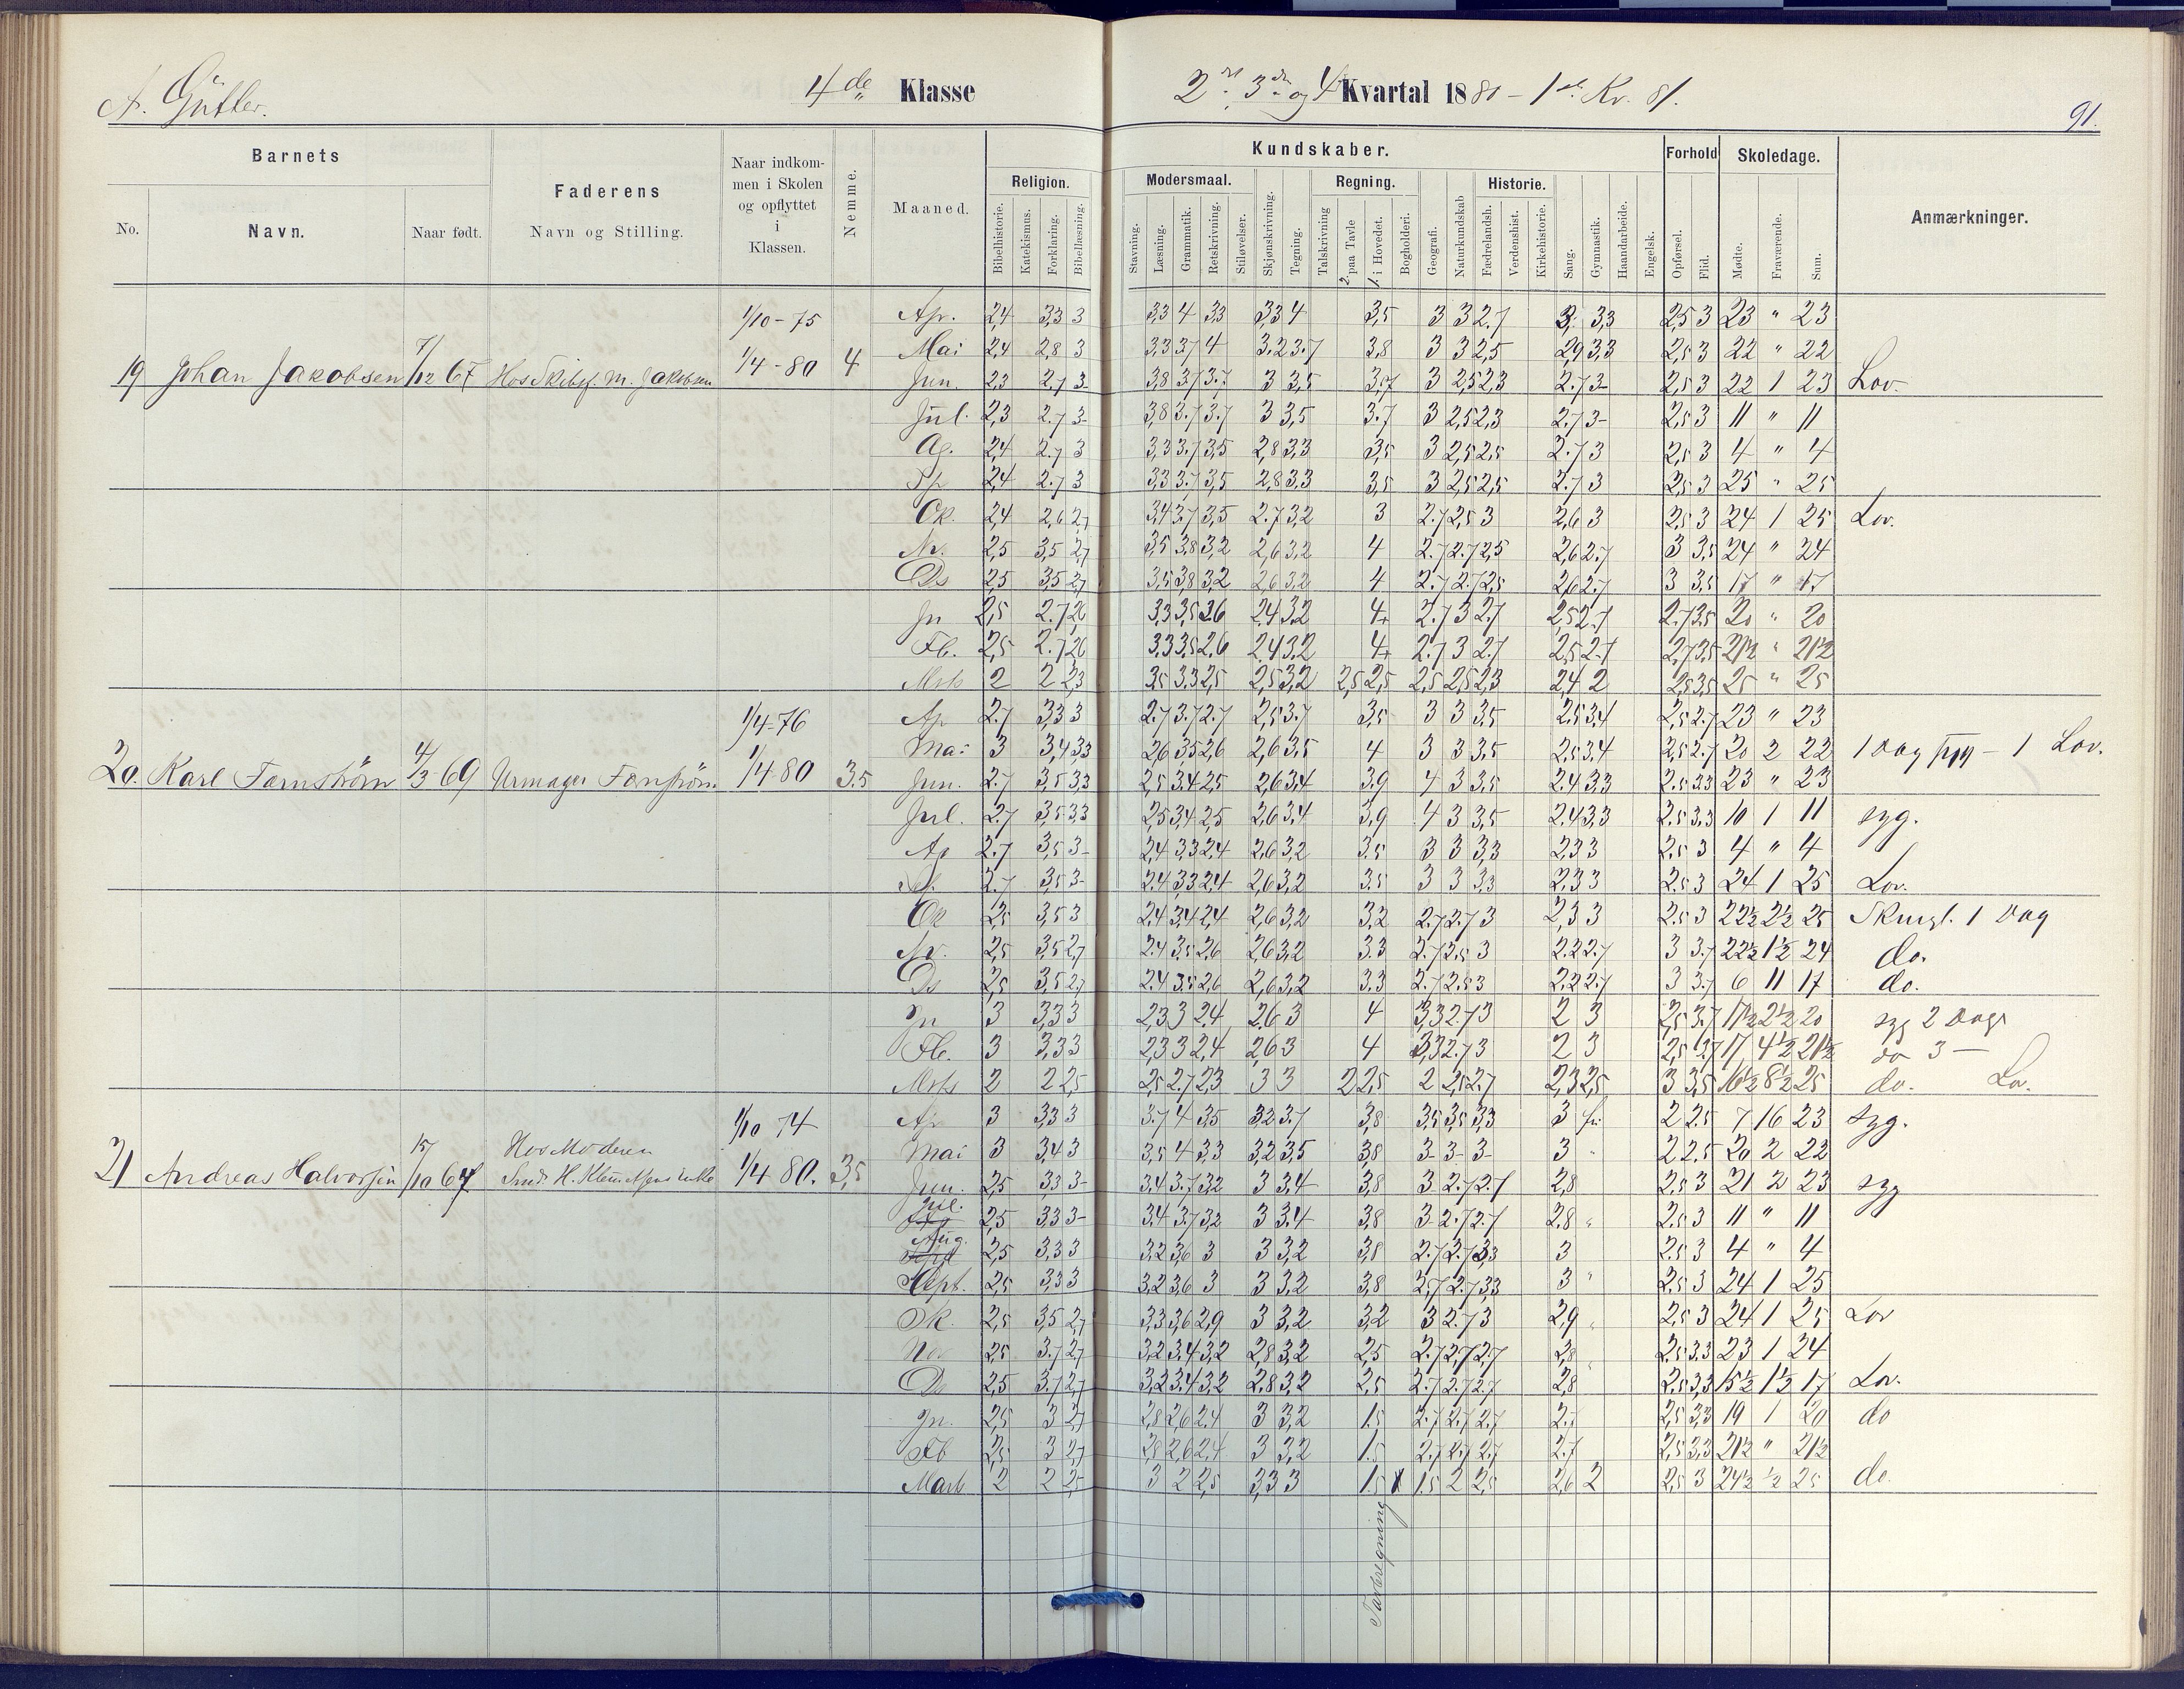 A. Güttler.
4de Klasse
2det 3die og 4 Kvartal 1880 - 1ste Kv. 81.
91.
Barnets
Faderens
Naar indkommen i Skolen og opflyttet i Klassen.
Nemme.
Maaned.
Kundskaber.
Forhold
Skoledage.
Anmærkninger.
Religion.
Modersmaal.
Regning.
Historie.
No.
Navn.
Naar født.
Navn og Stilling.
Bibelhistorie. Katekismus. Forklaring. Bibellæsning.
Stavning. Læsning. Grammatik. Retskrivning. Stiløvelser. Skjønskrivning. Tegning. Talskrivning 2. paa Tavle 1. i Hovedet. Bogholderi. Geografi. Naturkundskab Fædrelandsh. Verdenshist. Kirkehistorie. Sang. Gymnastik. Haandarbeide. Engelsk. Opførsel. Flid. Mødte. Fraværende. Sum.
1/10-75 Apr. 2,4 3,3 3 3,3 4 3,3 3,3 4 3,5 3 3 2.7 3. 3,3 2,5 3 23 " 23
19 Johan Jakobsen 7/12 67 Hos Skibsf. M. Jakobsen 1/4-80 4 Mai 2,4 2,8 3 3,3 3,7 4 3.2 3.7 3,8 3 3 2,5 2,9 3,3 2,5 3 22 " 22
Jun. 2,3 2.7 3- 3,8 3.7 3.7 3 3,5 3,7 3 2,5 2,3 2.7 3- 2,5 3 22 1 23 Lov.
Jul. 2,3 2.7 3- 3,8 3.7 3.7 3 3,5 3.7 3 2,5 2,3 2.7 3- 2,5 3 11 " 11
Ag. 2,4 2.7 3 3,3 3.7 3,5 2,8 3,3 3,5 3 2,5 2,5 2.7 3 2,5 3 4 " 4
Sp 2,4 2.7 3 3,3 3.7 3,5 2,8 3,3 3,5 3 2,5 2,5 2.7 3 2,5 3 25 " 25
Ok. 2,4 2,6 2,7 3,4 3,7 3,5 2.7 3,2 3 2.7 2,5 3 2,6 3 2,5 3 24 1 25 Lov.
Nv. 2,5 3,5 2,7 3,5 3,8 3,2 2,6 3,2 4 2.7 2.7 2,5 2,6 2.7 3 3,5 24 " 24
Ds 2,5 3,5 2,7 3,5 3,8 3,2 2,6 3,2 4 2.7 2.7 2,5 2,6 2.7 3 3,5 17 " 17
Jn 2,5 2.7 2,6 3,3 3,5 2,6 2,4 3,2 4+ 2.7 3 2.7 2,5 2.7 2.7 3,5 20 " 20
Fb. 2,5 2.7 2,6 3,3 3,5 2,6 2,4 3,2 4+ 2.7 3 2.7 2,5 2.7 2,7 3,5 21½ " 21½
Mrts 2 2 2,3 3,5 3,3 2,5 2,5 3,2 2,5 2,5 2,5 2,5 2,3 2,4 2 2,5 3,5 25 " 25
1/4-76 Ap 2.7 3,3 3 2.7 3.7 2.7 2,5 3.7 3,5 3 3 3,5 2,5 3,4 2,5 2.7 23 " 23
20. Karl Fornström 4/3 69 Urmager Fornström 1/4 80 3.5 Mai 3 3,4 3,3 2,6 3,5 2,6 2,6 3,5 4 3 3 3,5 2,5 3,4 2,5 2.7 20 2 22 1 Dag syg - 1 Lov.
Jun. 2.7 3,5 3,3 2,5 3,4 2,5 2,6 3,4 3,9 4 3 3,5 2,4 3,3 2.5 3,3 23 " 23
Jul. 2.7 3,5 3,3 2,5 3,4 2,5 2,6 3,4 3,9 4 3 3,5 2,4 3,3 2.5 3,3 10 1 11 syg.
Ag 2.7 3,5 3- 2,4 3,3 2,4 2,6 3,2 3.5 3 3 3,3 2,3 3 2,5 3 4 " 4
Sp. 2.7 3,5 3- 2,4 3,3 2,4 2,6 3,2 3.5 3 3 3,3 2,3 3 2.5 3 24 1 25 Lov.
Ok 2,5 3,5 3 2,4 3,4 2,4 2,6 3,2 3,2 2.7 2.7 3 2,3 3 2.5 3 22½ 2½ 25 1 Dag
Nv. 2,5 3,5 2,7 2.4 3,5 2,6 2,6 3,2 3.3 2.7 2.5 3 2.2 2.7 3 3.7 22½ 1½ 24 do.
Ds 2,5 3,5 2,7 2.4 3.5 2,6 2,6 3,2 3.3 2.7 2.5 3 2,2 2.7 3 3.7 6 11 17 do.
Jn 3 3,3 3 2,3 3 2,4 2,6 3 4 3,3 2.7 3 2 3 2,5 3.7 17½ 2½ 20 syg 2 Dage
Fb. 3 3,3 3 2,3 3 2,4 2,6 3 4 3,3 2.7 3 2 3 2,5 3,7 17 4½ 21½ do 3 -
Mrts 2 2 2,5 2,5 2.7 2,3 3 3 2 2,5 2 2,5 2.7 2,3 2,5 3 3,5 16½ 8½ 25 do. Lov.
1/10 74 Ap 3 3,3 3 3.7 4 3,5 3,2 3.7 3,8 3,5 3,5 3,3 3 fri 2 2.5 7 16 23 syg.
21 Andreas Halvorsen 15/10 67 Hos Moderen 1/4 80. 3,5 Mai 3 3,4 3 3,5 4 3,3 3,2 3,5 3,8 3- 3- 3- 3 " 2 2.5 20 2 22
Jun. 2,5 3,3 3- 3,4 3.7 3,2 3 3,4 3,8 3- 2.7 2.7 2,8 2.5 3 21 2 23 syg
Jul. 2,5 3,3 3- 3,4 3.7 3,2 3 3,4 3,8 3- 2.7 2.7 2,8 " 2.5 3 11 " 11
Aug. 2,5 3,3 3 3,2 3,6 3 3 3,2 3,8 2.7 2.7 3,3 3 2.5 3 4 " 4
Sept. 2,5 3,3 3 3,2 3,6 3 3 3,2 3,8 2,7 2.7 3,3 3 " 2.5 3 24 1 25
Ok. 2,5 3,5 2,7 3,3 3,6 2,9 3 3,2 3,2 3 2.7 3 2,9 " 2.5 3 24 1 25 Lov
Nov 2,5 3.7 2,7 3,2 3.4 3,2 2,8 3,2 2,5 2.7 2,7 2.7 2,8 2.5 3.3 23 1 24
Ds 2,5 3.7 2,7 3,2 3.4 3,2 2,8 3,2 2,5 2.7 2.7 2.7 2,8 2,5 3,3 15½ 1½ 17 Lov.
Jn. 2,5 3 2,7 2,8 2,6 2,4 3 3,2 1.5 2.7 2.7 2,7 2.7 2,5 3,3 19 1 20 do
Fb 2,5 3 2,7 2,8 2,6 2,4 3 3,2 1.5 2.7 2.7 2.7 2.7 2,5 3,3 21½ " 21½
Marts 2 2 2,5 3 2 2,5 3,3 3 1.5 1.5 2 2,5 2,6 2 2,5 3 24½ ½ 25 do.
Tavleregning